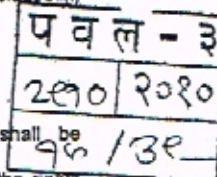 प व ल - ३
२९१० २०१०
shall be
/ ३९